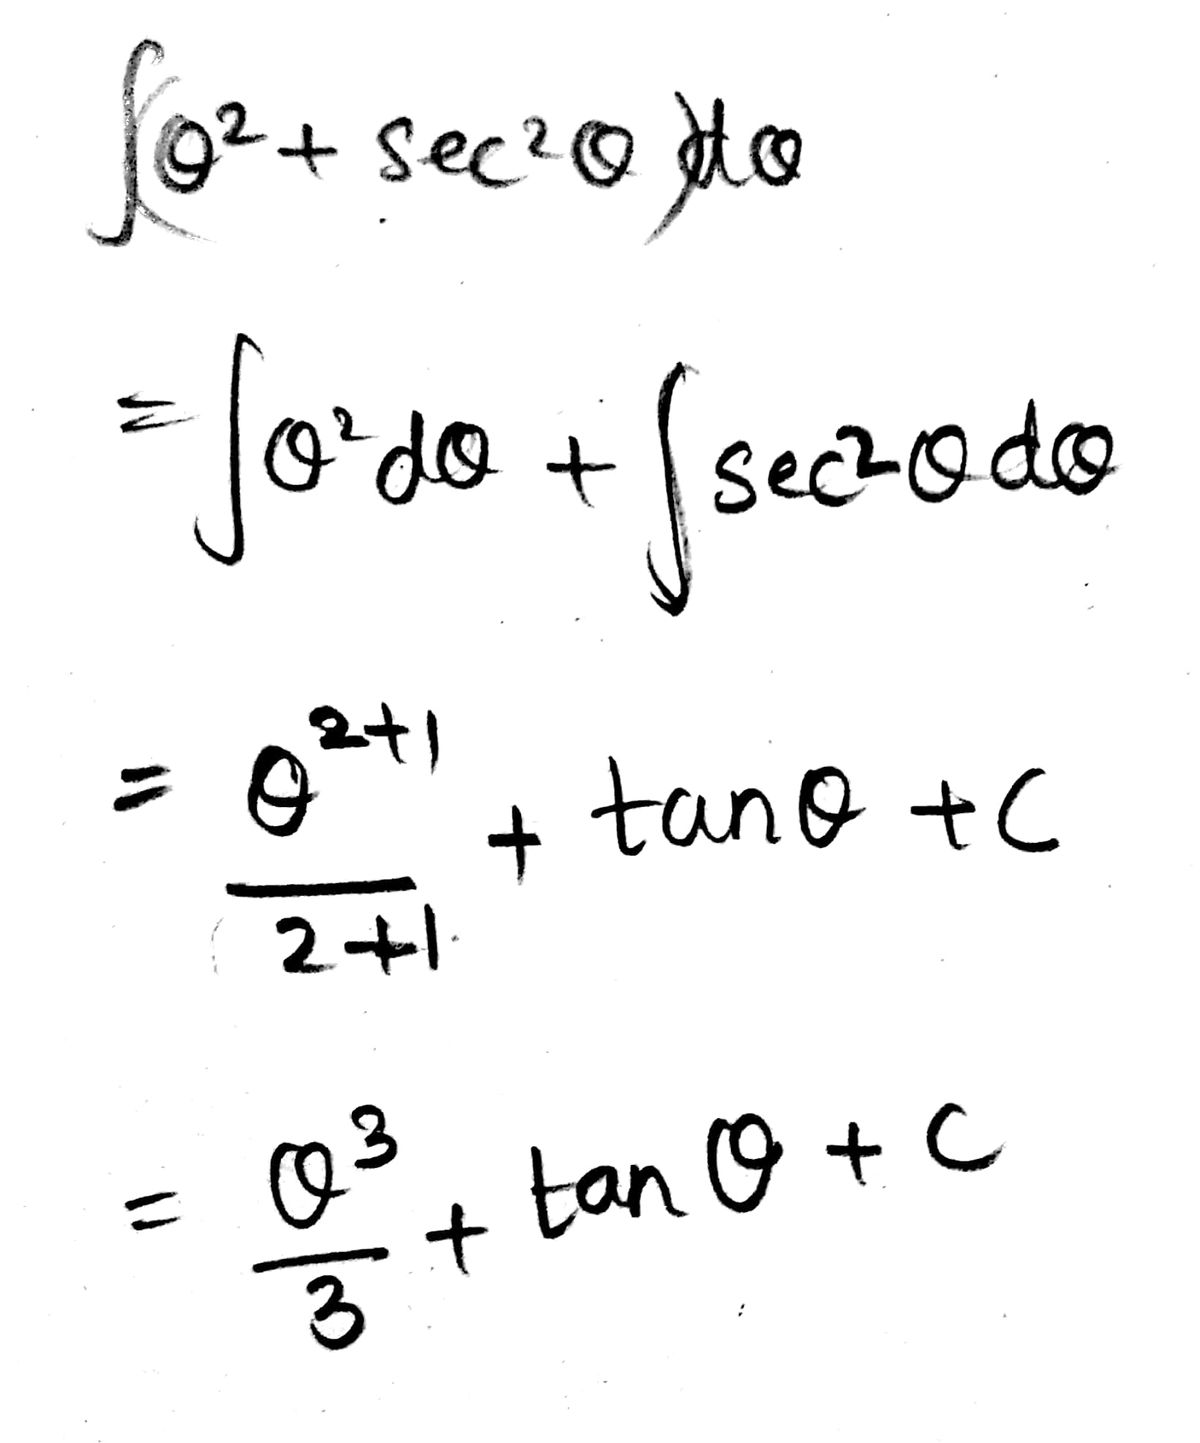 ∫(θ² + sec²θ)dθ
= ∫θ²dθ + ∫sec²θdθ
= θ^(2+1)/(2+1) + tanθ + C
= θ³/3 + tanθ + C